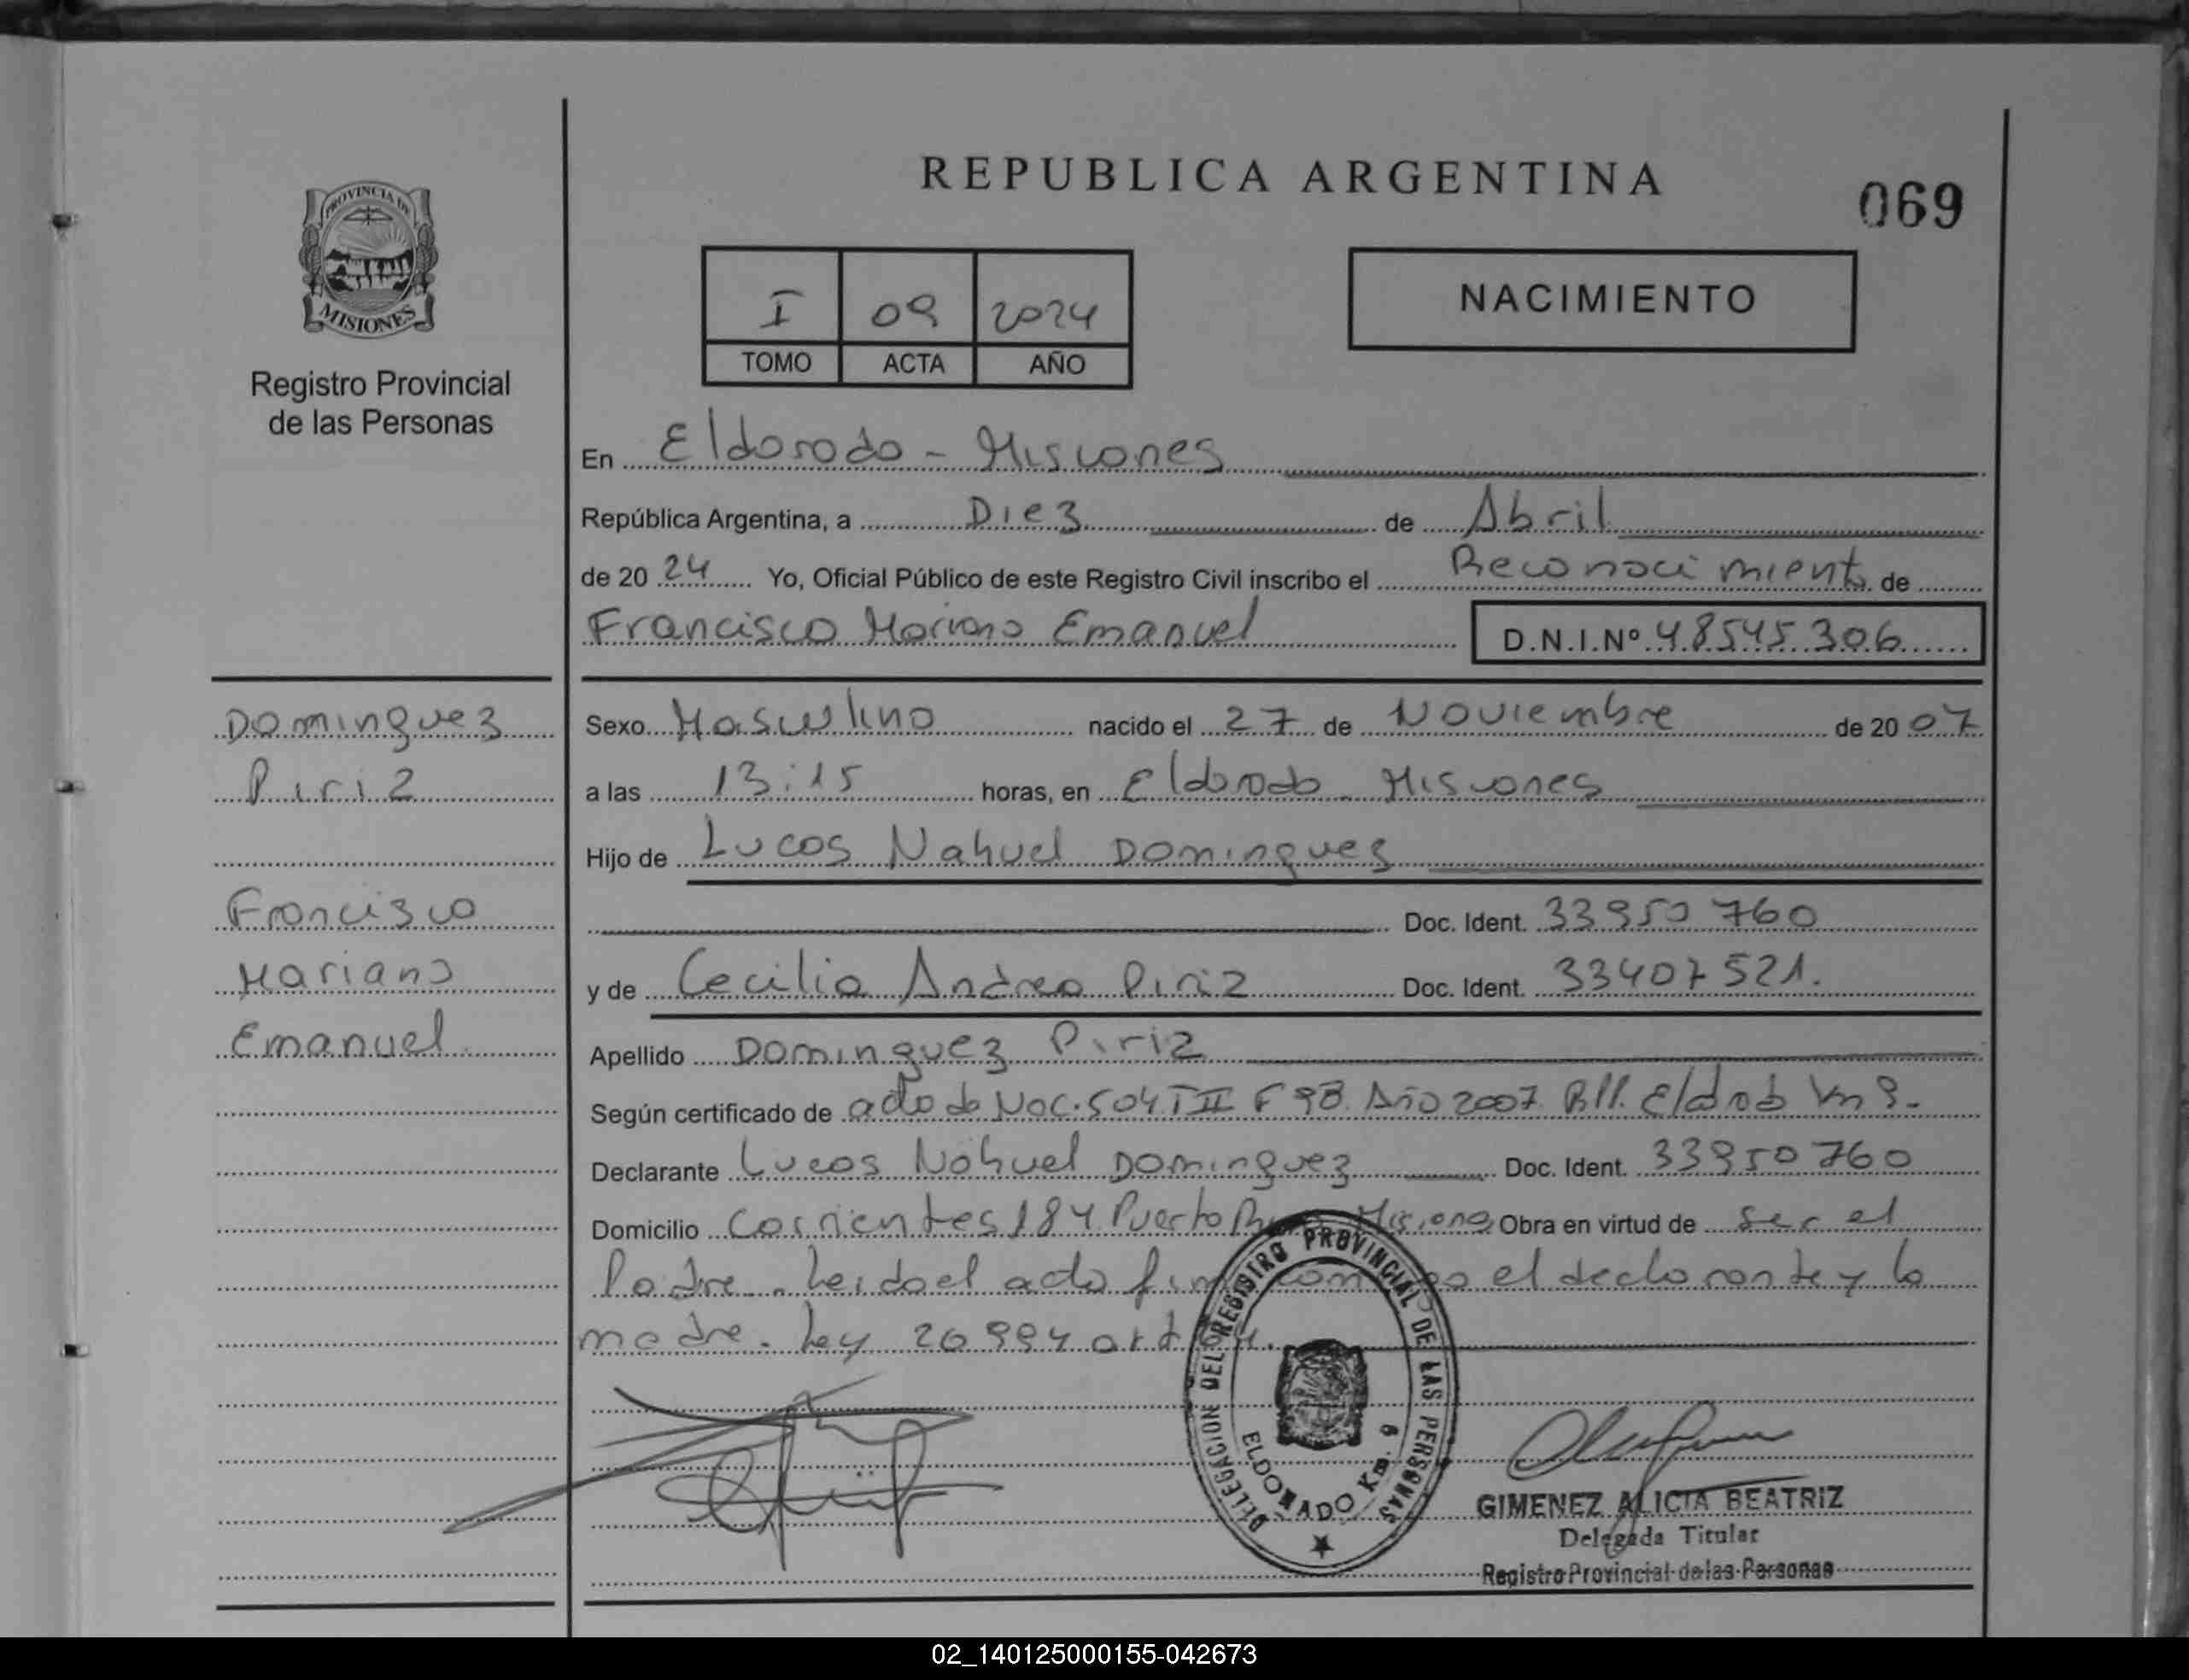 REPUBLICA ARGENTINA
069
PROVINCIA DE
MISIONES
Registro Provincial
de las Personas
I 09 2024
TOMO ACTA AÑO
NACIMIENTO
En Eldorado - Misiones
República Argentina, a Diez de Abril
de 20 24 Yo, Oficial Público de este Registro Civil inscribo el Reconocimiento de
Francisco Mariano Emanuel D.N.I.Nº 48545306
Dominguez
Piriz
Francisco
Mariano
Emanuel
Sexo Masculino nacido el 27 de Noviembre de 20 07
a las 13:15 horas, en Eldorado - Misiones
Hijo de Lucas Nahuel Dominguez
Doc. Ident. 33950760
y de Cecilia Andrea Piriz Doc. Ident. 33407521.
Apellido Dominguez Piriz
Según certificado de acta de Nac. 504 T II F 98 Año 2007 Eldorado Km 9.
Declarante Lucas Nahuel Dominguez Doc. Ident. 33950760
Domicilio Corrientes 184 Puerto Misiones Obra en virtud de ser el
Padre. Leido el acta el declarante y la
madre. Ley 26994 art
DELEGACION DEL REGISTRO PROVINCIAL DE LAS PERSONAS
ELDORADO Km. 9
GIMENEZ ALICIA BEATRIZ
Delegada Titular
Registro Provincial de las Personas
02_140125000155-042673